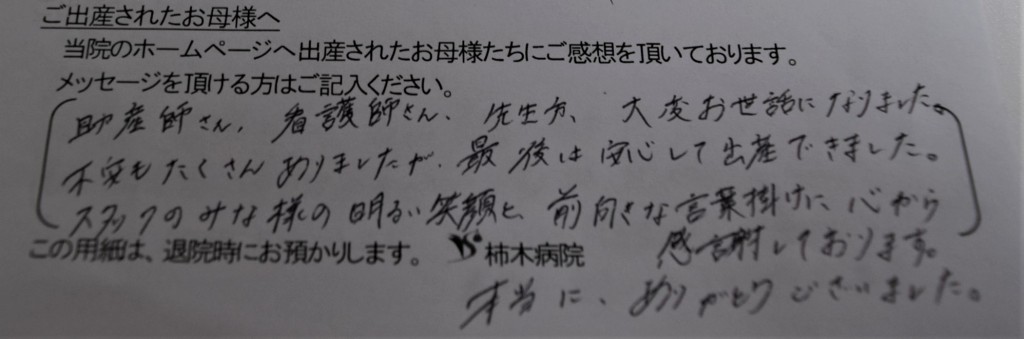 ご出産されたお母様へ
当院のホームページへ出産されたお母様たちにご感想を頂いております。
メッセージを頂ける方はご記入ください。
助産師さん、看護師さん、先生方、大変お世話になりました。
不安もたくさんありましたが、最後は安心して出産できました。
スタッフのみな様の明るい笑顔と、前向きな言葉掛けに心から
感謝しております。
この用紙は、退院時にお預かりします。 柿木病院
本当に、ありがとうございました。